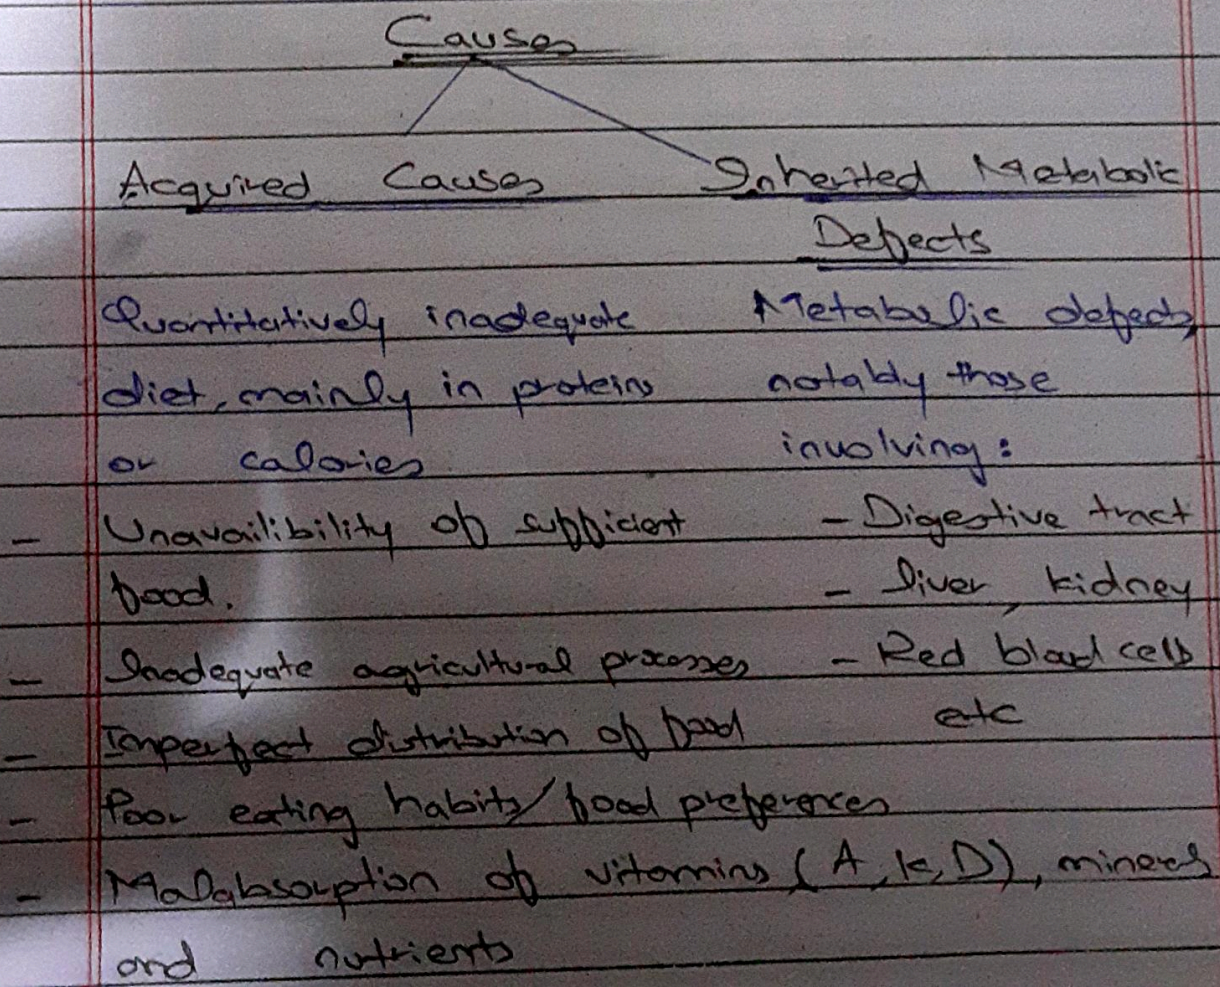 Causes
Acquired Causes
Inherited Metabolic
Defects
Quantitatively inadequate
diet, mainly in proteins
or calories
- Unavailibility of sufficient
food.
- Inadequate agricultural processes
- Imperfect distribution of food
- Poor eating habits/food preferences
- Malabsorption of vitamins (A, K, D), minerals
and nutrients
Metabolic defects,
notably those
involving:
- Digestive tract
- liver, kidney
- Red blood cells
etc